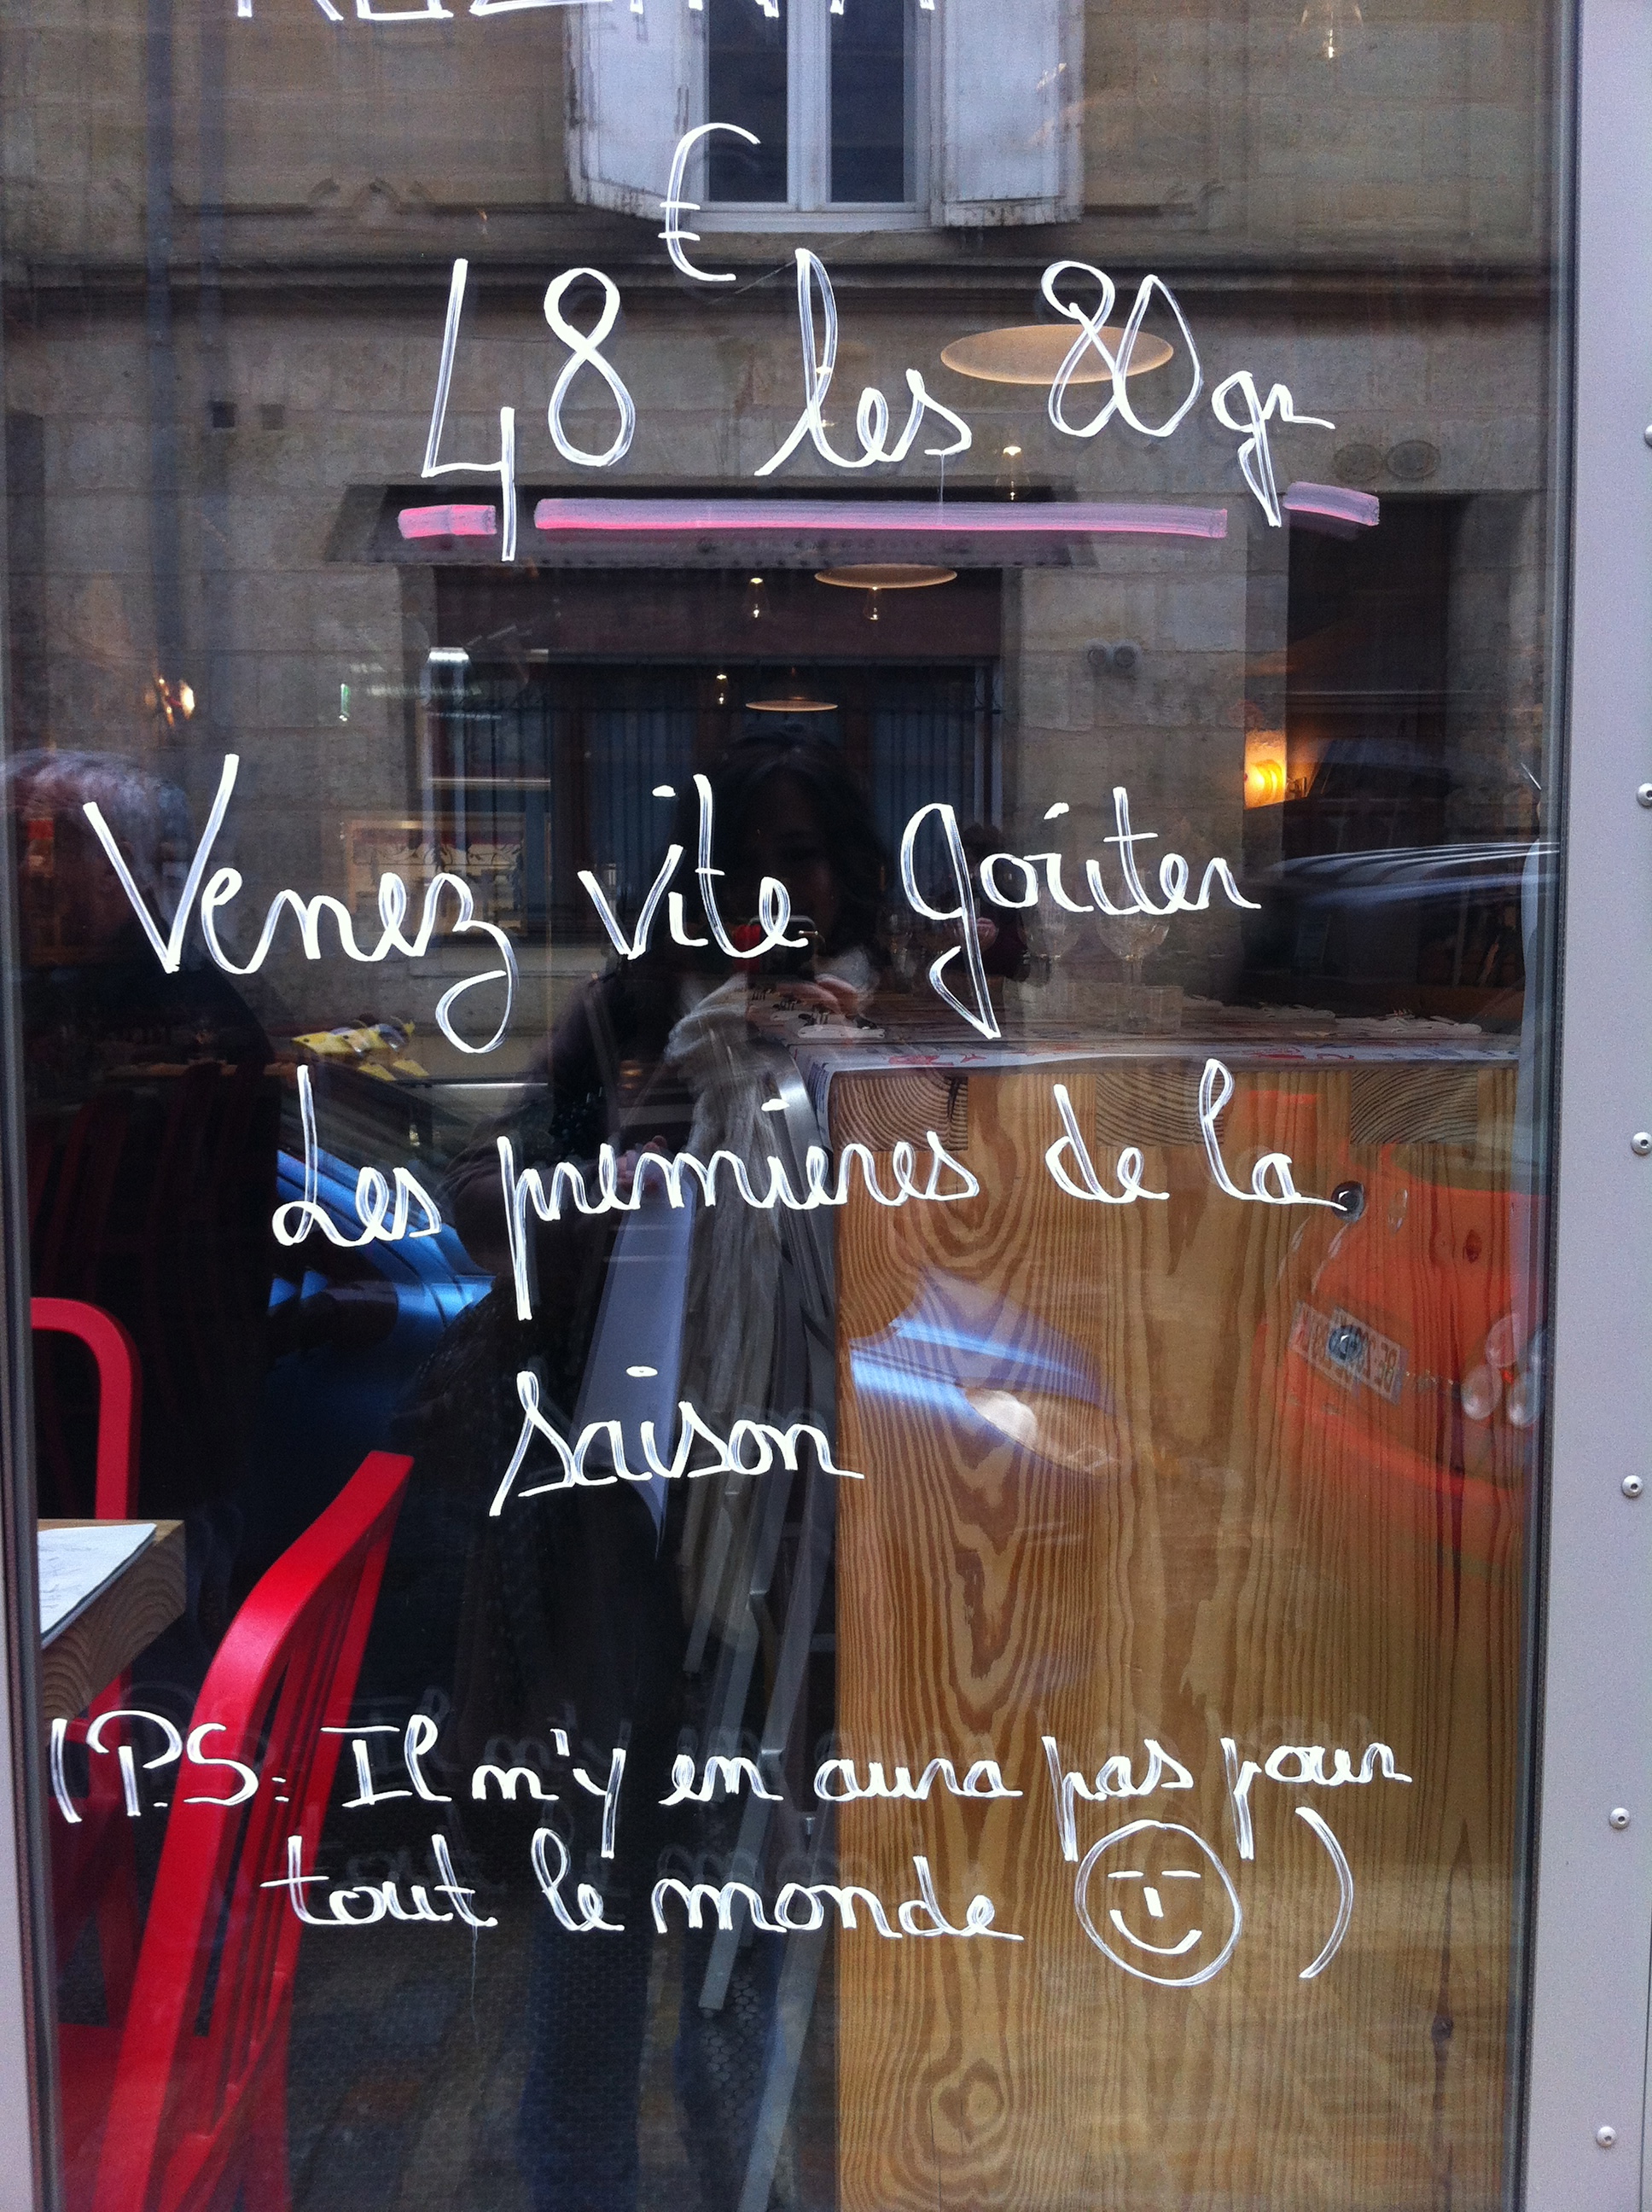 48€ les 80gr
Venez vite goûter
Les premieres de la
saison
(P.S: Il n'y en aura pas pour
tout le monde )